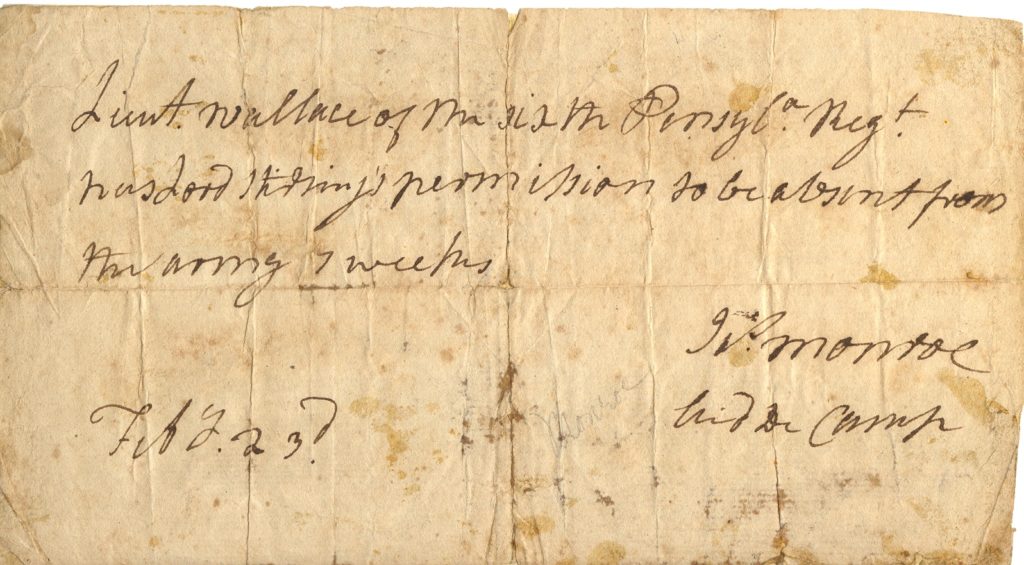 Lieut. Wallace of the sixth Pensylª. Regt.
has Lord Stirling's permission to be absent from
the army 7 weeks
Jaˢ. Monroe
Aid De Camp
Feby. 23d.
Monroe